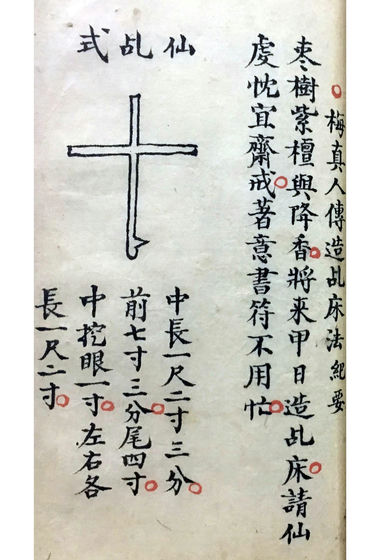 梅真人傳造乩床法紀要
枣樹紫檀與降香將来甲日造乩床請仙
虔忱宜齋戒著意書符不用忙
仙乩式
中長一尺二寸三分
前七寸三分尾四寸
中挖眼一寸左右各
長一尺二寸